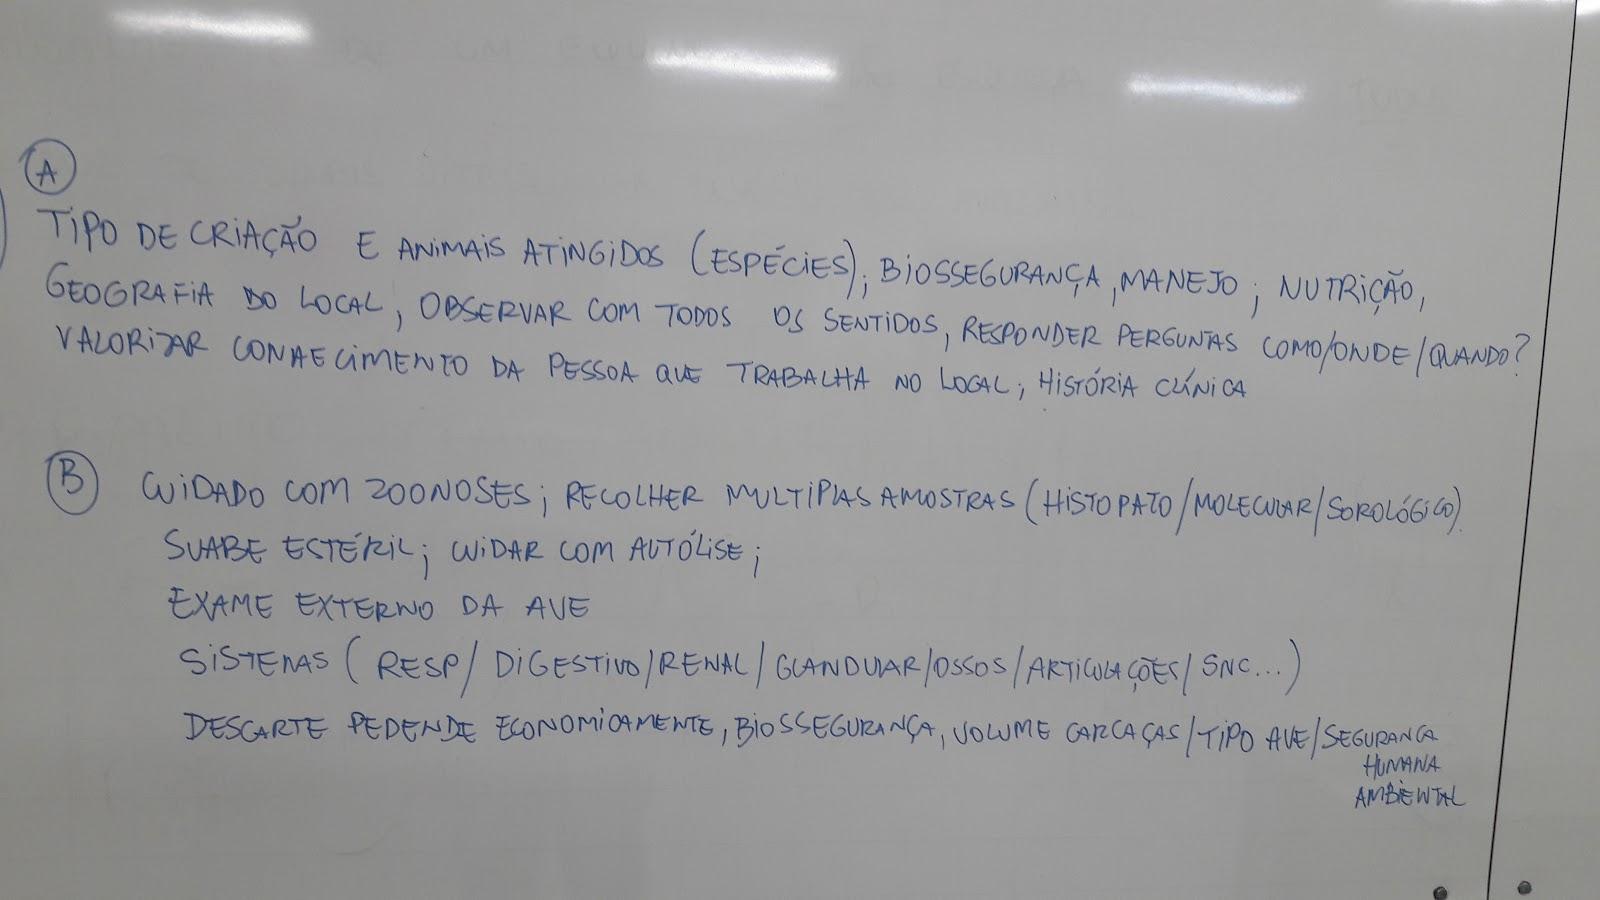 A
TIPO DE CRIAÇÃO E ANIMAIS ATINGIDOS (ESPÉCIES); BIOSSEGURANÇA, MANEJO; NUTRIÇÃO,
GEOGRAFIA DO LOCAL, OBSERVAR COM TODOS OS SENTIDOS, RESPONDER PERGUNTAS COMO/ONDE/QUANDO?
VALORIZAR CONHECIMENTO DA PESSOA QUE TRABALHA NO LOCAL; HISTÓRIA CLÍNICA
B
CUIDADO COM ZOONOSES; RECOLHER MULTIPLAS AMOSTRAS (HISTOPATO/MOLECULAR/SOROLÓGICO).
SUABE ESTÉRIL; CUIDAR COM AUTÓLISE;
EXAME EXTERNO DA AVE
SISTEMAS (RESP/DIGESTIVO/RENAL/GLANDULAR/OSSOS/ARTICULAÇÕES/SNC...)
DESCARTE PEDENDE ECONOMICAMENTE, BIOSSEGURANÇA, VOLUME CARCAÇAS/TIPO AVE/SEGURANCA
HUMANA
AMBIENTAL